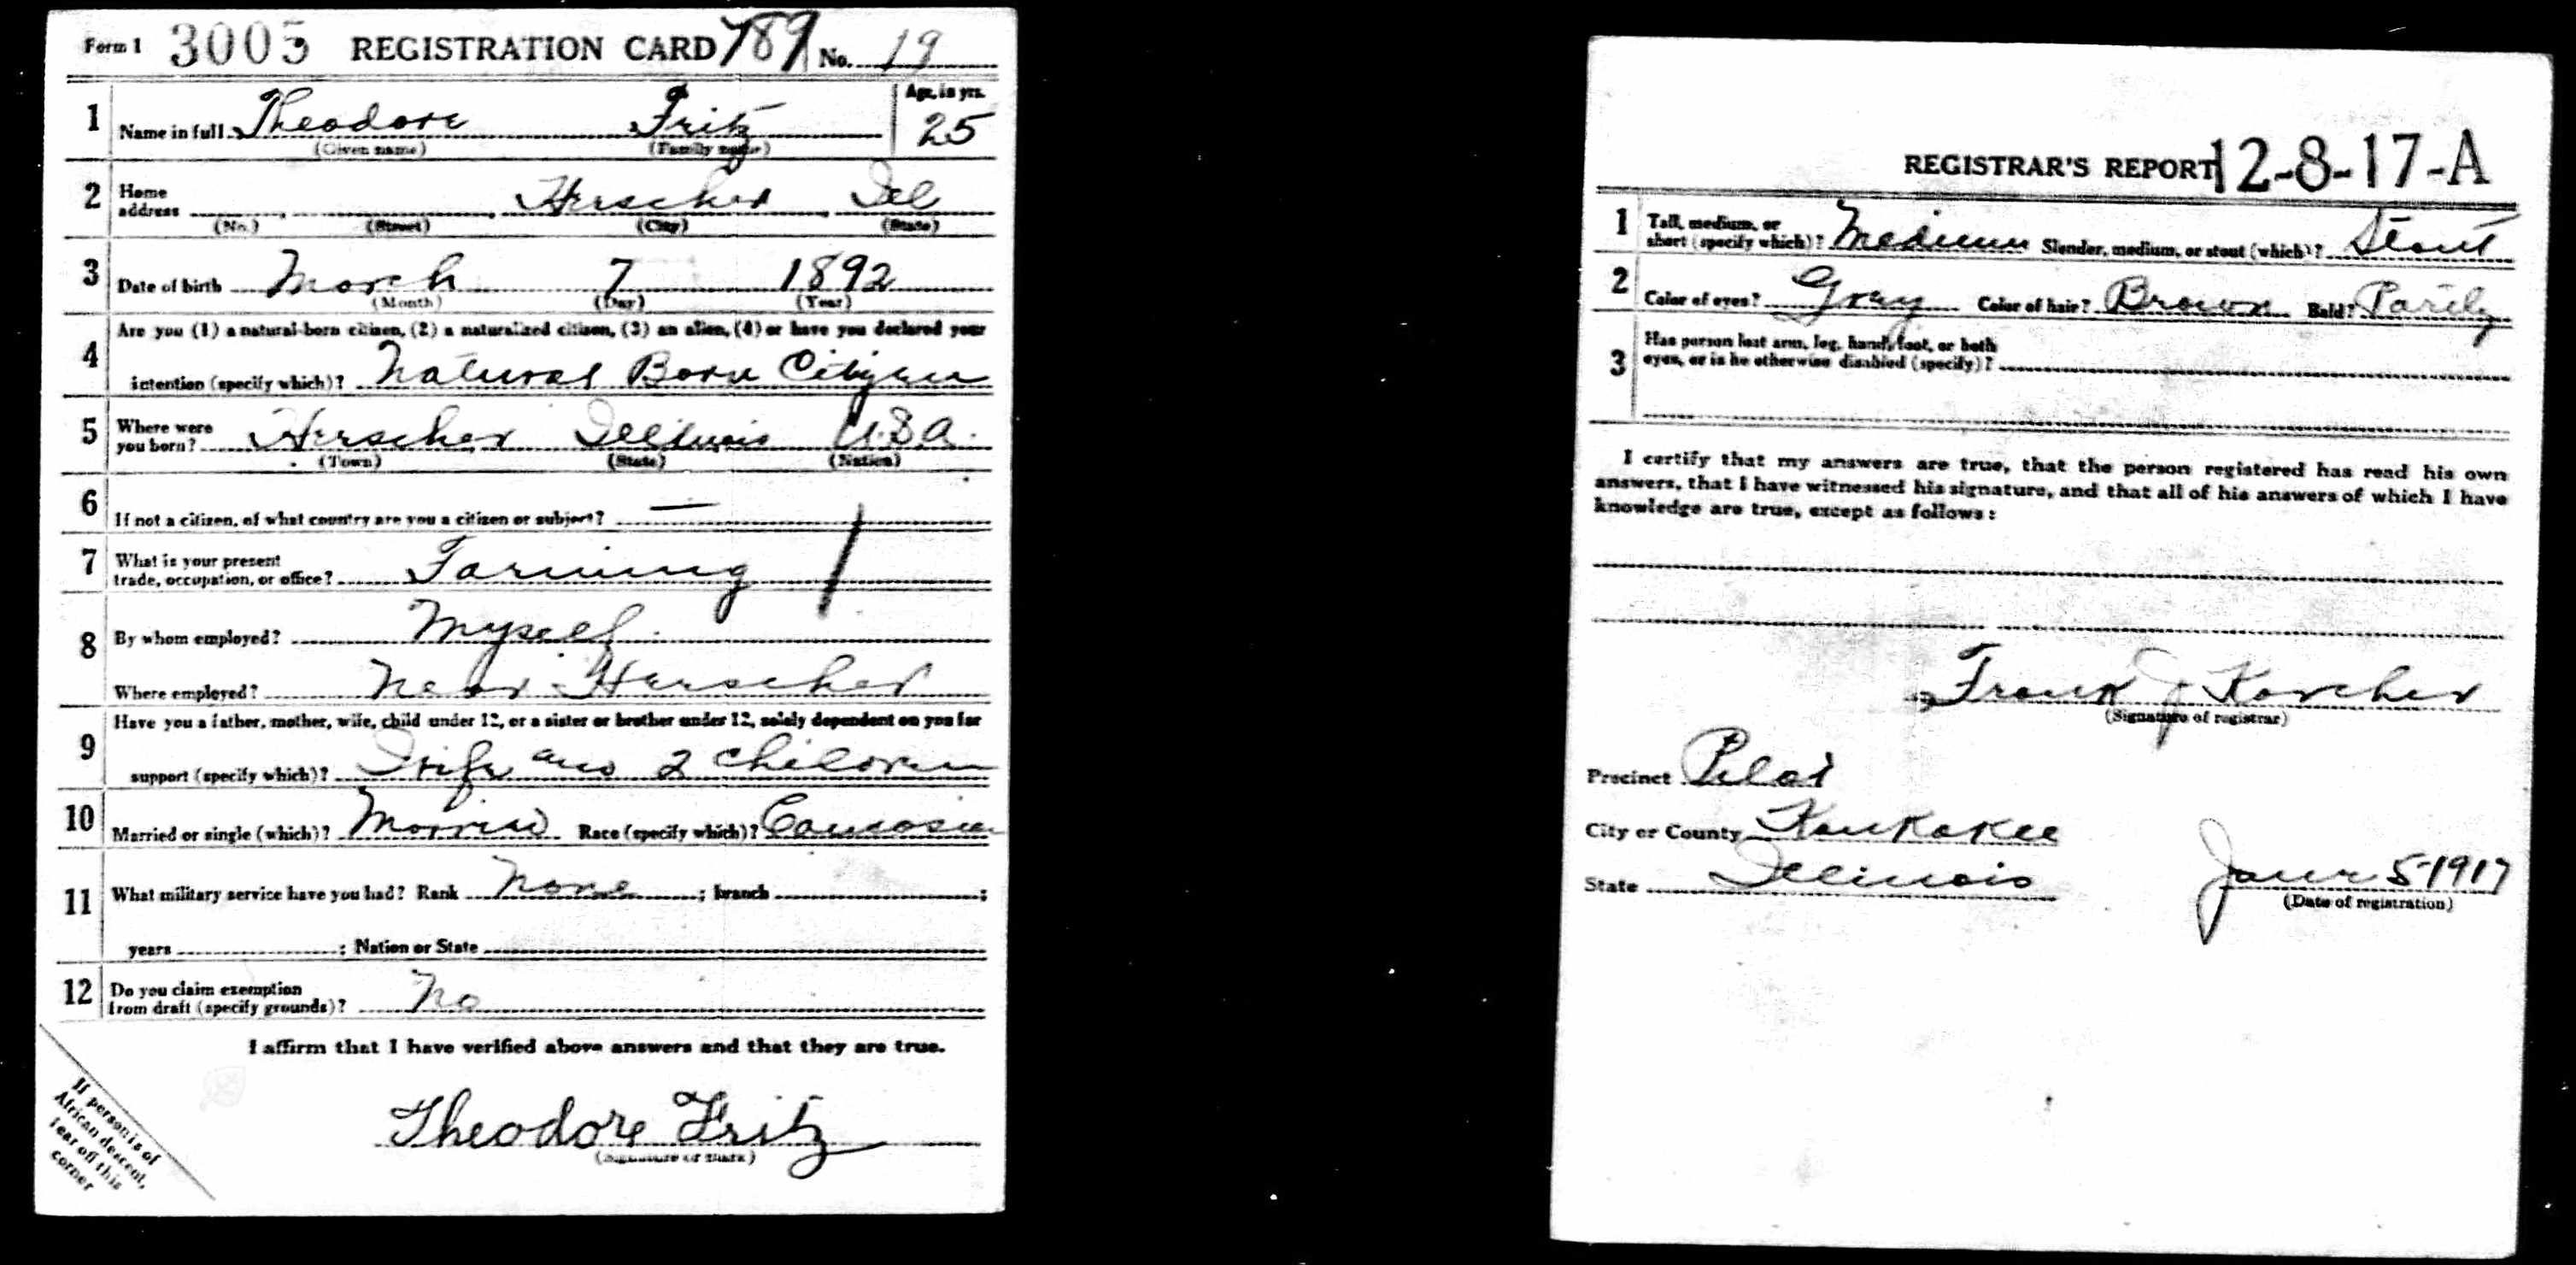 Form 1 3005 REGISTRATION CARD 789 No. 19
1 Name in full Theodore Fritz Age, in yrs. 25
(Given name) (Family name)
2 Home address Herscher Ill
(No.) (Street) (City) (State)
3 Date of birth March 7 1892
(Month) (Day) (Year)
4 Are you (1) a natural-born citizen, (2) a naturalized citizen, (3) an alien, (4) or have you declared your
intention (specify which)? Natural Born Citizen
5 Where were you born? Herscher Illinois U.S.A.
(Town) (State) (Nation)
6 If not a citizen, of what country are you a citizen or subject? —
7 What is your present trade, occupation, or office? Farming
8 By whom employed? Myself
Where employed? Near Herscher
9 Have you a father, mother, wife, child under 12, or a sister or brother under 12, solely dependent on you for
support (specify which)? Wife and 2 children
10 Married or single (which)? Married Race (specify which)? Caucasian
11 What military service have you had? Rank None ; branch ;
years ; Nation or State
12 Do you claim exemption from draft (specify grounds)? No
I affirm that I have verified above answers and that they are true.
Theodore Fritz
(Signature or mark)
If person is of
African descent,
tear off this
corner
REGISTRAR'S REPORT 12-8-17-A
1 Tall, medium, or short (specify which)? Medium Slender, medium, or stout (which)? Stout
2 Color of eyes? Gray Color of hair? Brown Bald? Partly
3 Has person lost arm, leg, hand, foot, or both
eyes, or is he otherwise disabled (specify)?
I certify that my answers are true, that the person registered has read his own
answers, that I have witnessed his signature, and that all of his answers of which I have
knowledge are true, except as follows:
Frank J Karcher
(Signature of registrar)
Precinct Pilot
City or County Kankakee
State Illinois June 5-1917
(Date of registration)